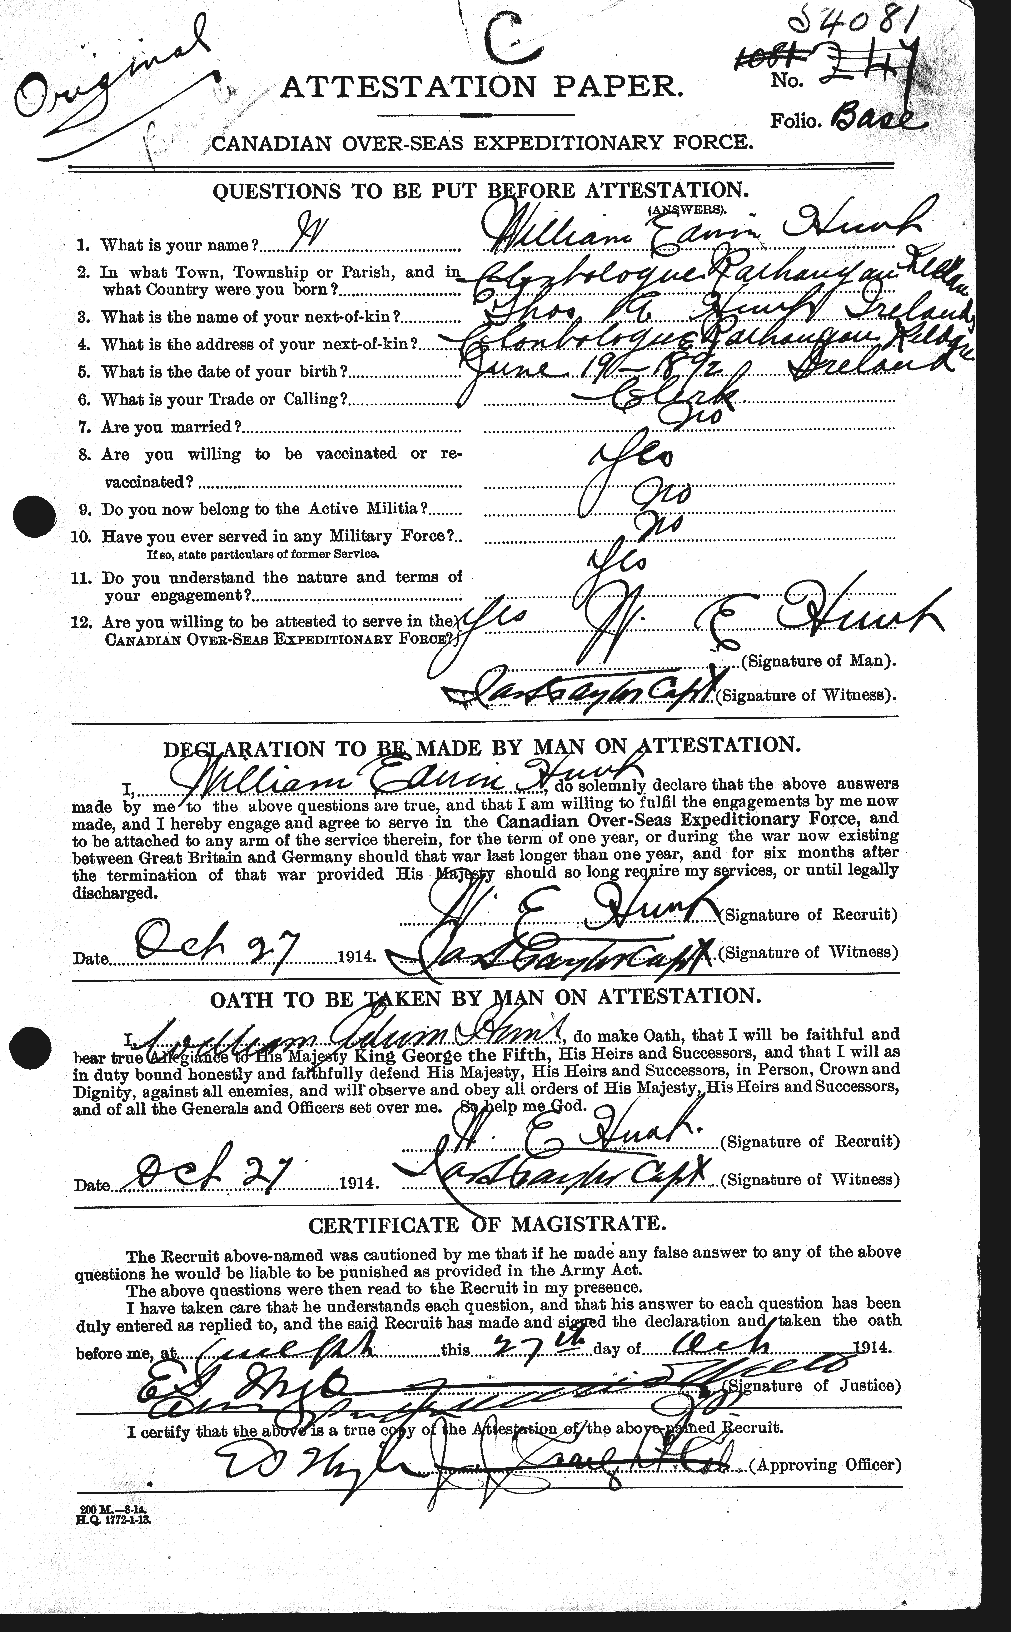 Original
C
54081
No. 247
ATTESTATION PAPER.
Folio. Base
CANADIAN OVER-SEAS EXPEDITIONARY FORCE.
QUESTIONS TO BE PUT BEFORE ATTESTATION.
(ANSWERS).
1. What is your name? W William Edwin Hunt
2. In what Town, Township or Parish, and in
what Country were you born? Clonbologue Rathangan Kildare
3. What is the name of your next-of-kin? Thos Hunt Ireland
4. What is the address of your next-of-kin? Clonbologue Rathangan Kildare
5. What is the date of your birth? June 19 - 1892 Ireland
6. What is your Trade or Calling? Clerk
7. Are you married? no
8. Are you willing to be vaccinated or re-
vaccinated? Yes
9. Do you now belong to the Active Militia? no
10. Have you ever served in any Military Force? no
If so, state particulars of former Service.
11. Do you understand the nature and terms of
your engagement? Yes
12. Are you willing to be attested to serve in the Yes W. E Hunt
CANADIAN OVER-SEAS EXPEDITIONARY FORCE?
(Signature of Man).
Capt (Signature of Witness).
DECLARATION TO BE MADE BY MAN ON ATTESTATION.
I, William Edwin Hunt, do solemnly declare that the above answers
made by me to the above questions are true, and that I am willing to fulfil the engagements by me now
made, and I hereby engage and agree to serve in the Canadian Over-Seas Expeditionary Force, and
to be attached to any arm of the service therein, for the term of one year, or during the war now existing
between Great Britain and Germany should that war last longer than one year, and for six months after
the termination of that war provided His Majesty should so long require my services, or until legally
discharged.
W. E Hunt (Signature of Recruit)
Date Oct 27 1914. Capt (Signature of Witness)
OATH TO BE TAKEN BY MAN ON ATTESTATION.
I, William Edwin Hunt, do make Oath, that I will be faithful and
bear true Allegiance to His Majesty King George the Fifth, His Heirs and Successors, and that I will as
in duty bound honestly and faithfully defend His Majesty, His Heirs and Successors, in Person, Crown and
Dignity, against all enemies, and will observe and obey all orders of His Majesty, His Heirs and Successors,
and of all the Generals and Officers set over me. So help me God.
W. E Hunt. (Signature of Recruit)
Date Oct 27 1914. Capt (Signature of Witness)
CERTIFICATE OF MAGISTRATE.
The Recruit above-named was cautioned by me that if he made any false answer to any of the above
questions he would be liable to be punished as provided in the Army Act.
The above questions were then read to the Recruit in my presence.
I have taken care that he understands each question, and that his answer to each question has been
duly entered as replied to, and the said Recruit has made and signed the declaration and taken the oath
before me, at Guelph this 27th day of Oct 1914.
(Signature of Justice)
I certify that the above is a true copy of the Attestation of the above-named Recruit.
(Approving Officer)
200 M.—8-14.
H.Q. 1772-1-13.